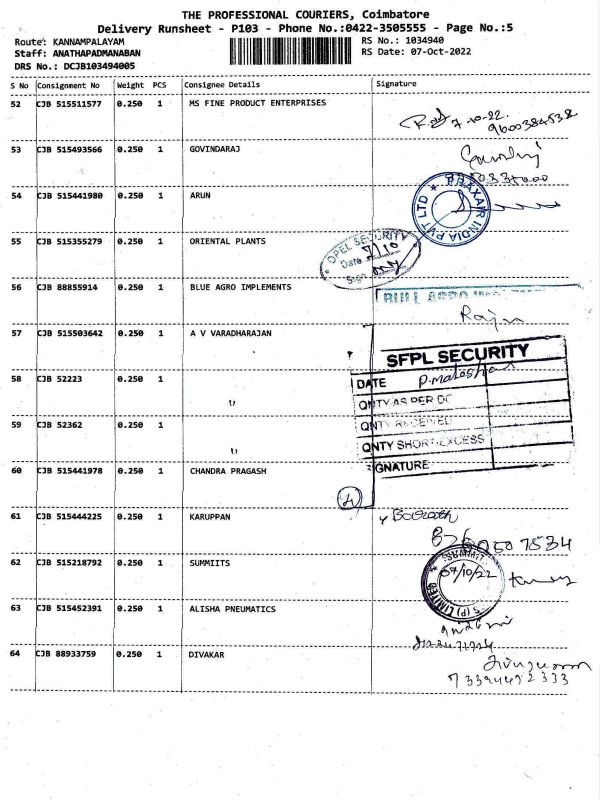 THE PROFESSIONAL COURIERS, Coimbatore
Delivery Runsheet - P103 - Phone No.:0422-3505555 - Page No.:5
Route: KANNAMPALAYAM RS No.: 1034940
Staff: ANATHAPADMANABAN RS Date: 07-Oct-2022
DRS No.: DCJB103494005
S No Consignment No Weight PCS Consignee Details Signature
52 CJB 515511577 0.250 1 MS FINE PRODUCT ENTERPRISES
7-10-22.
9600384538
53 CJB 515493566 0.250 1 GOVINDARAJ
54 CJB 515441980 0.250 1 ARUN
PRAXAIR INDIA PVT LTD
55 CJB 515355279 0.250 1 ORIENTAL PLANTS
OPEL SECURITY
Date 7/10
Sign
56 CJB 88855914 0.250 1 BLUE AGRO IMPLEMENTS
Raju
57 CJB 515503642 0.250 1 A V VARADHARAJAN
SFPL SECURITY
58 CJB 52223 0.250 1 "
DATE
QNTY AS PER DC
59 CJB 52362 0.250 1 "
QNTY RECEIVED
QNTY SHORT/EXCESS
60 CJB 515441978 0.250 1 CHANDRA PRAGASH
SIGNATURE
4
61 CJB 515444225 0.250 1 KARUPPAN
62 CJB 515218792 0.250 1 SUMMIITS
07/10/22
(P) LIMITED
63 CJB 515452391 0.250 1 ALISHA PNEUMATICS
64 CJB 88933759 0.250 1 DIVAKAR